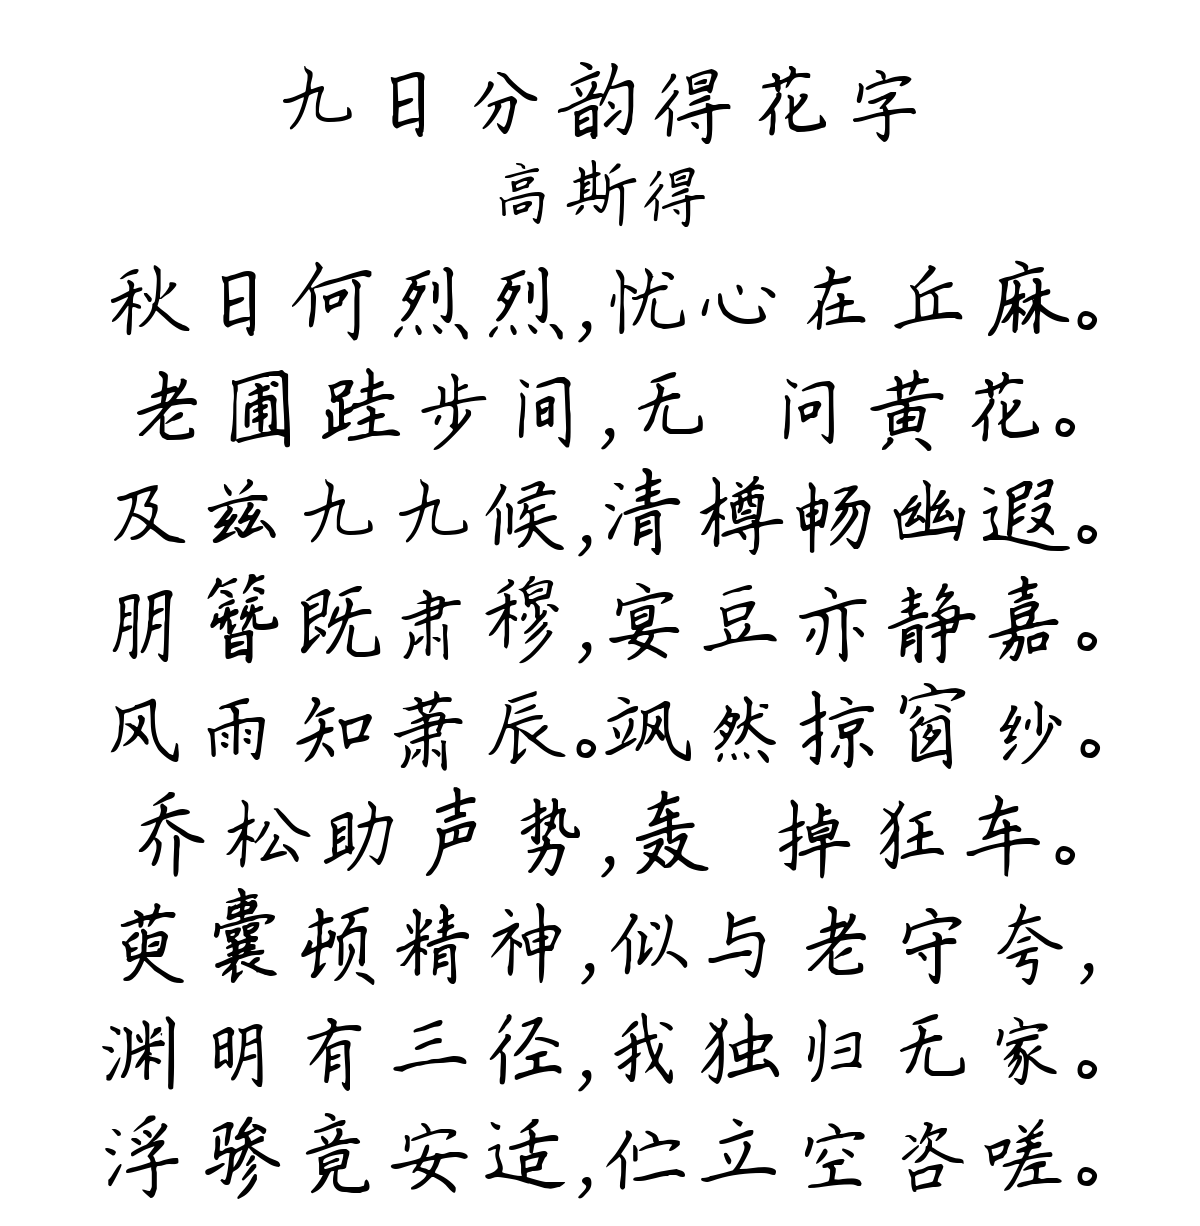 九日分韵得花字
高斯得
秋日何烈烈,忧心在丘麻。
老圃跬步间,无 问黄花。
及兹九九候,清樽畅幽遐。
朋簪既肃穆,宴豆亦静嘉。
风雨知萧辰。飒然掠窗纱。
乔松助声势,轰 掉狂车。
萸囊顿精神,似与老守夸,
渊明有三径,我独归无家。
浮骖竟安适,伫立空咨嗟。